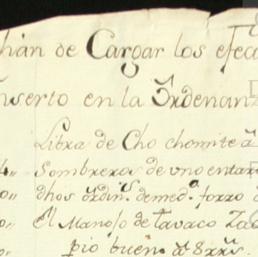 han de Cargar los efec
nserto en la Ordenan
Libra de Cho
Sombreros de uno entar
dhos ordin.s de med.a forro d
El Manojo de tavaco
pio buen.